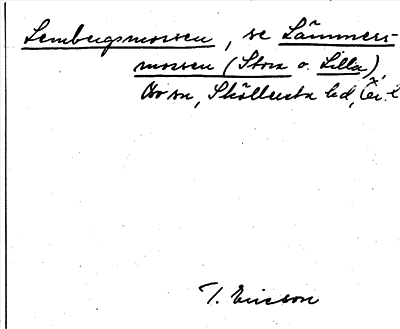 Lembergsmossen, se Lämmers-
mossen (Stora o. Lilla),
Bo sn, Sköllersta hd, Ör. l
T. Ericson